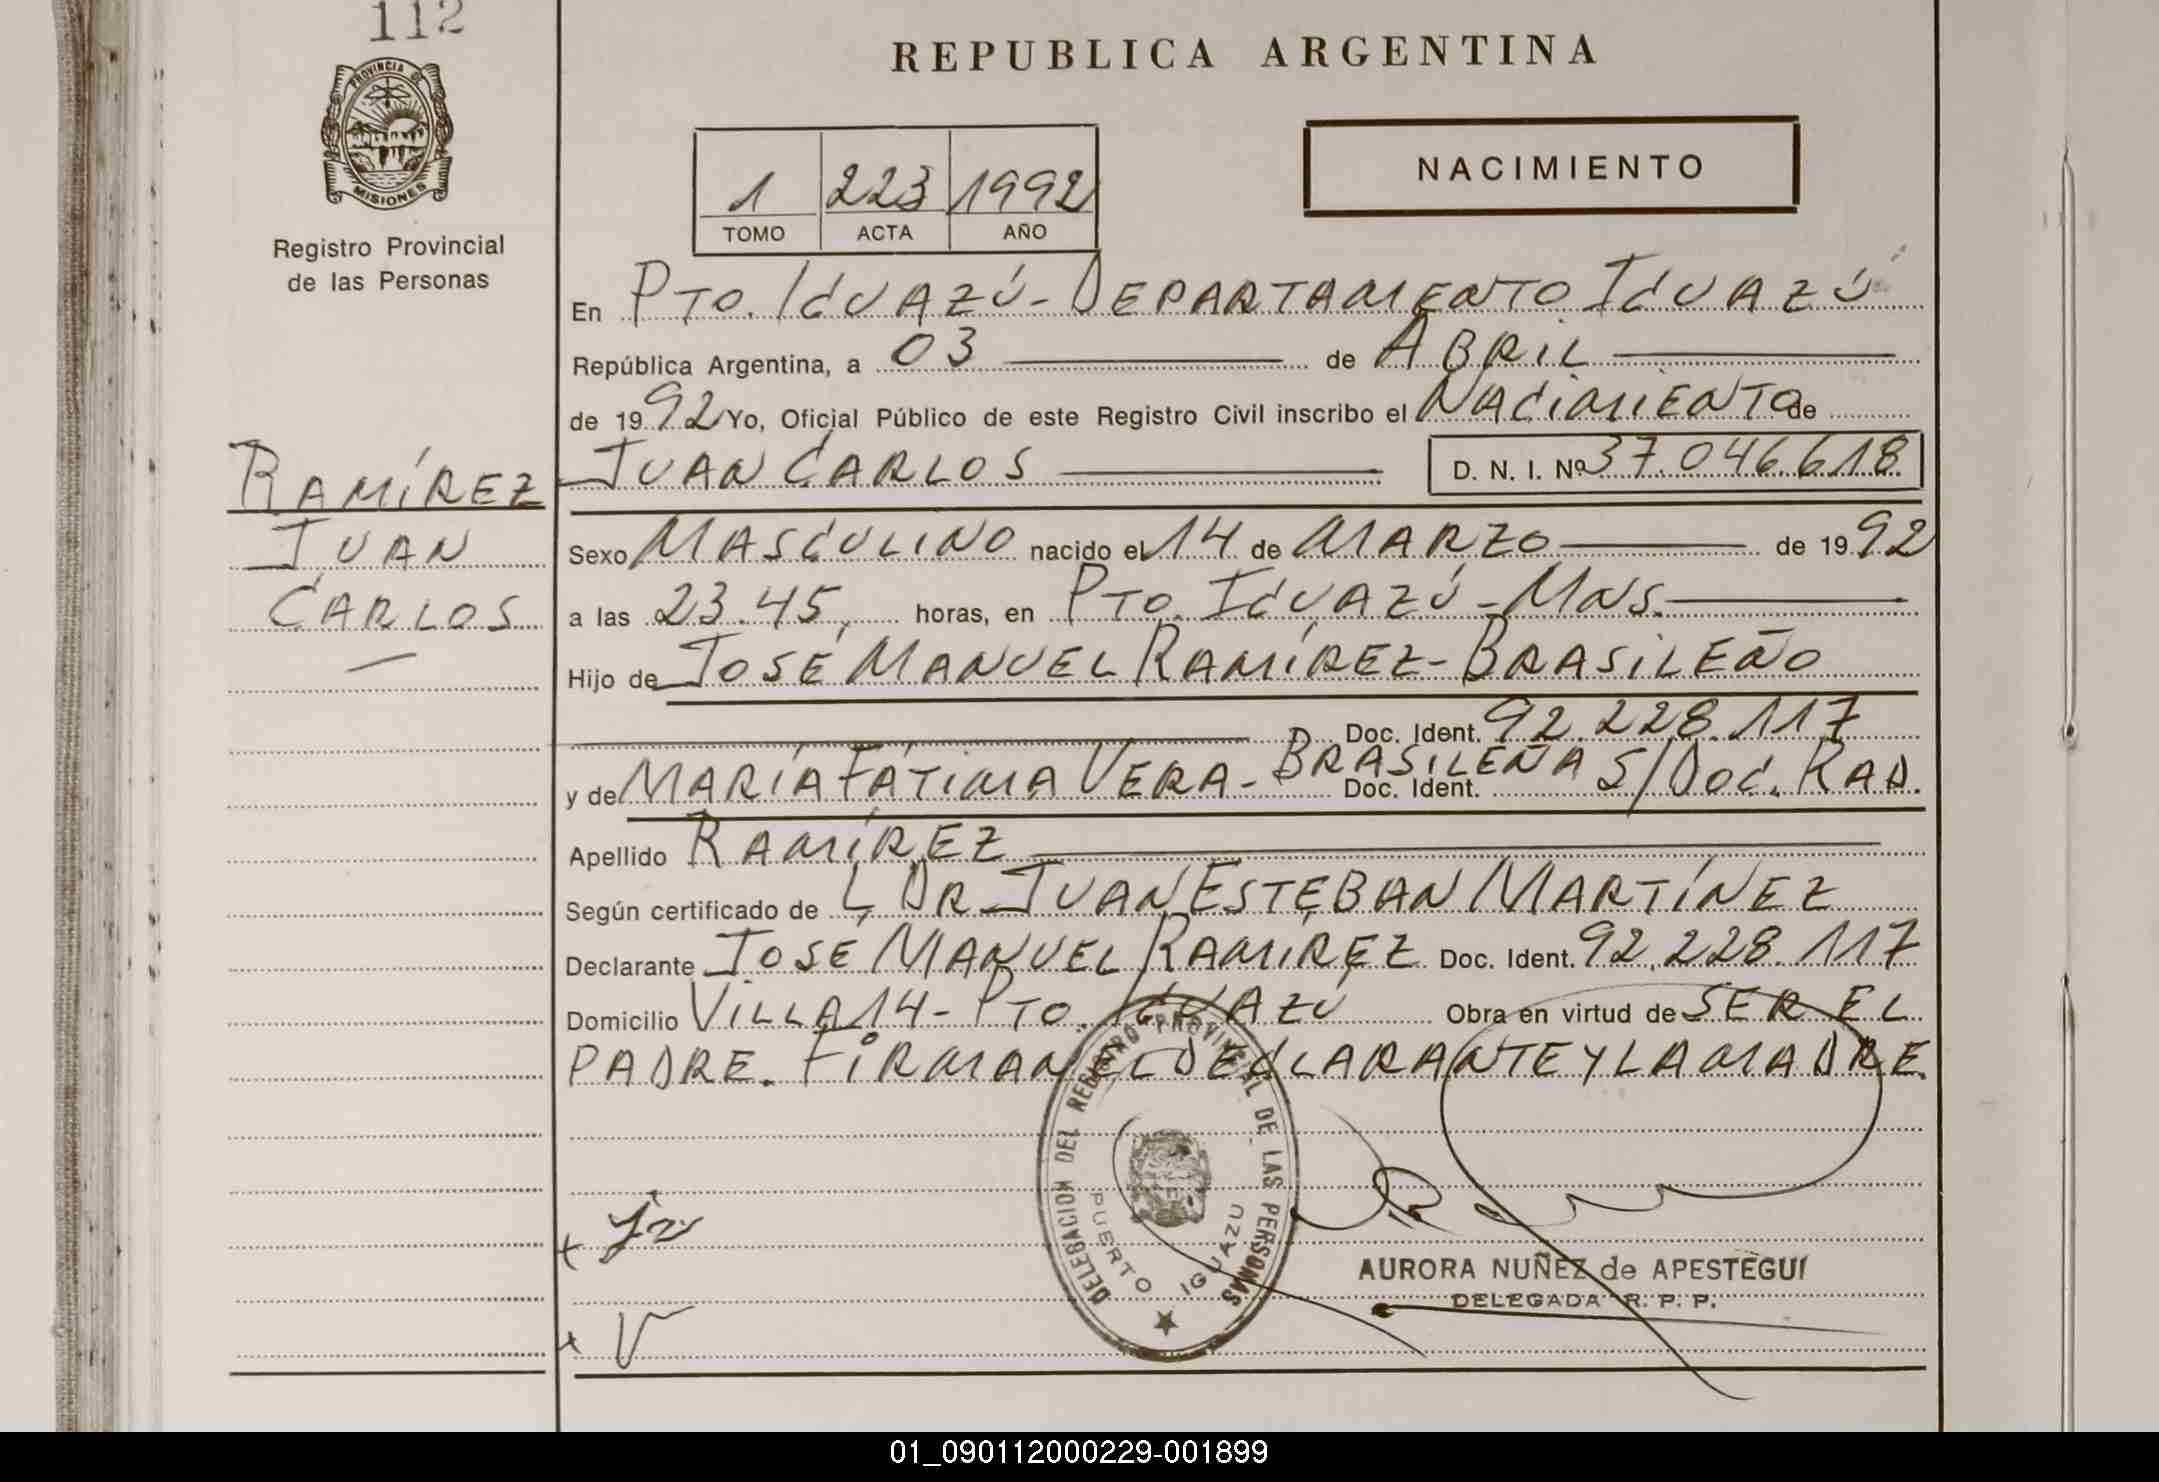 112
PROVINCIA DE
MISIONES
Registro Provincial
de las Personas
RAMÍREZ
JUAN
CARLOS
REPUBLICA ARGENTINA
1 223 1992
TOMO ACTA AÑO
NACIMIENTO
En PTO. IGUAZÚ - DEPARTAMENTO IGUAZÚ
República Argentina, a 03 de ABRIL
de 1992 Yo, Oficial Público de este Registro Civil inscribo el NACIMIENTO de
JUAN CARLOS D. N. I. Nº 37.046.618
Sexo MASCULINO nacido el 14 de MARZO de 1992
a las 23.45, horas, en PTO. IGUAZÚ - MNS.
Hijo de JOSÉ MANUEL RAMÍREZ - BRASILEÑO
Doc. Ident. 92.228.117
y de MARÍA FÁTIMA VERA - BRASILEÑA Doc. Ident. S/DOC. RAD.
Apellido RAMÍREZ
Según certificado de L, DR. JUAN ESTEBAN MARTÍNEZ
Declarante JOSÉ MANUEL RAMÍREZ Doc. Ident. 92.228.117
Domicilio VILLA 14 - PTO. IGUAZÚ Obra en virtud de SER EL
PADRE. FIRMAN EL DECLARANTE Y LA MADRE.
DELEGACION DEL REGISTRO PROVINCIAL DE LAS PERSONAS
PUERTO IGUAZU
AURORA NUÑEZ de APESTEGUI
DELEGADA R. P. P.
01_090112000229-001899